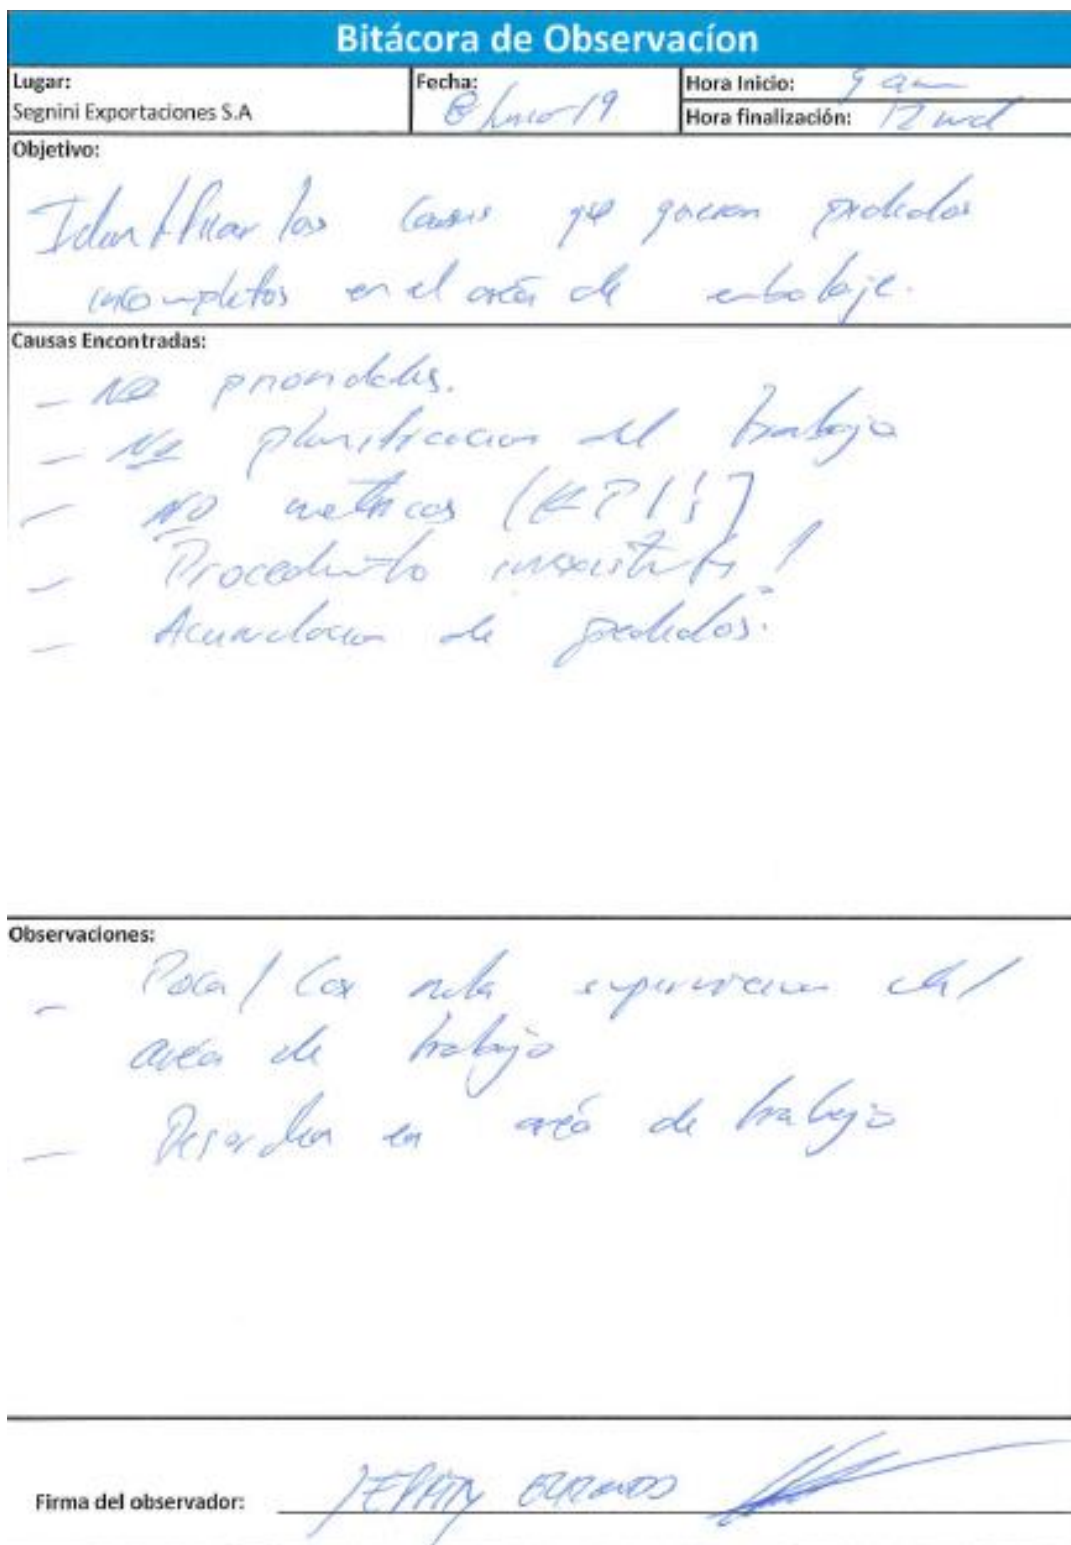 Bitácora de Observacíon
Lugar:
Segnini Exportaciones S.A
Fecha:
8 19
Hora Inicio: 9 am
Hora finalización: 12 md
Objetivo:
Identificar las causas que generan pedidos
incompletos en el area de embalaje.
Causas Encontradas:
- NO prioridades.
- No planificacion del trabajo
- NO metricas (KPI's)
- Procedimiento !
- Acumulacion de pedidos.
Observaciones:
- Poca / Casi nula supervicion del
area de trabajo
- Desorden en area de trabajo
Firma del observador: